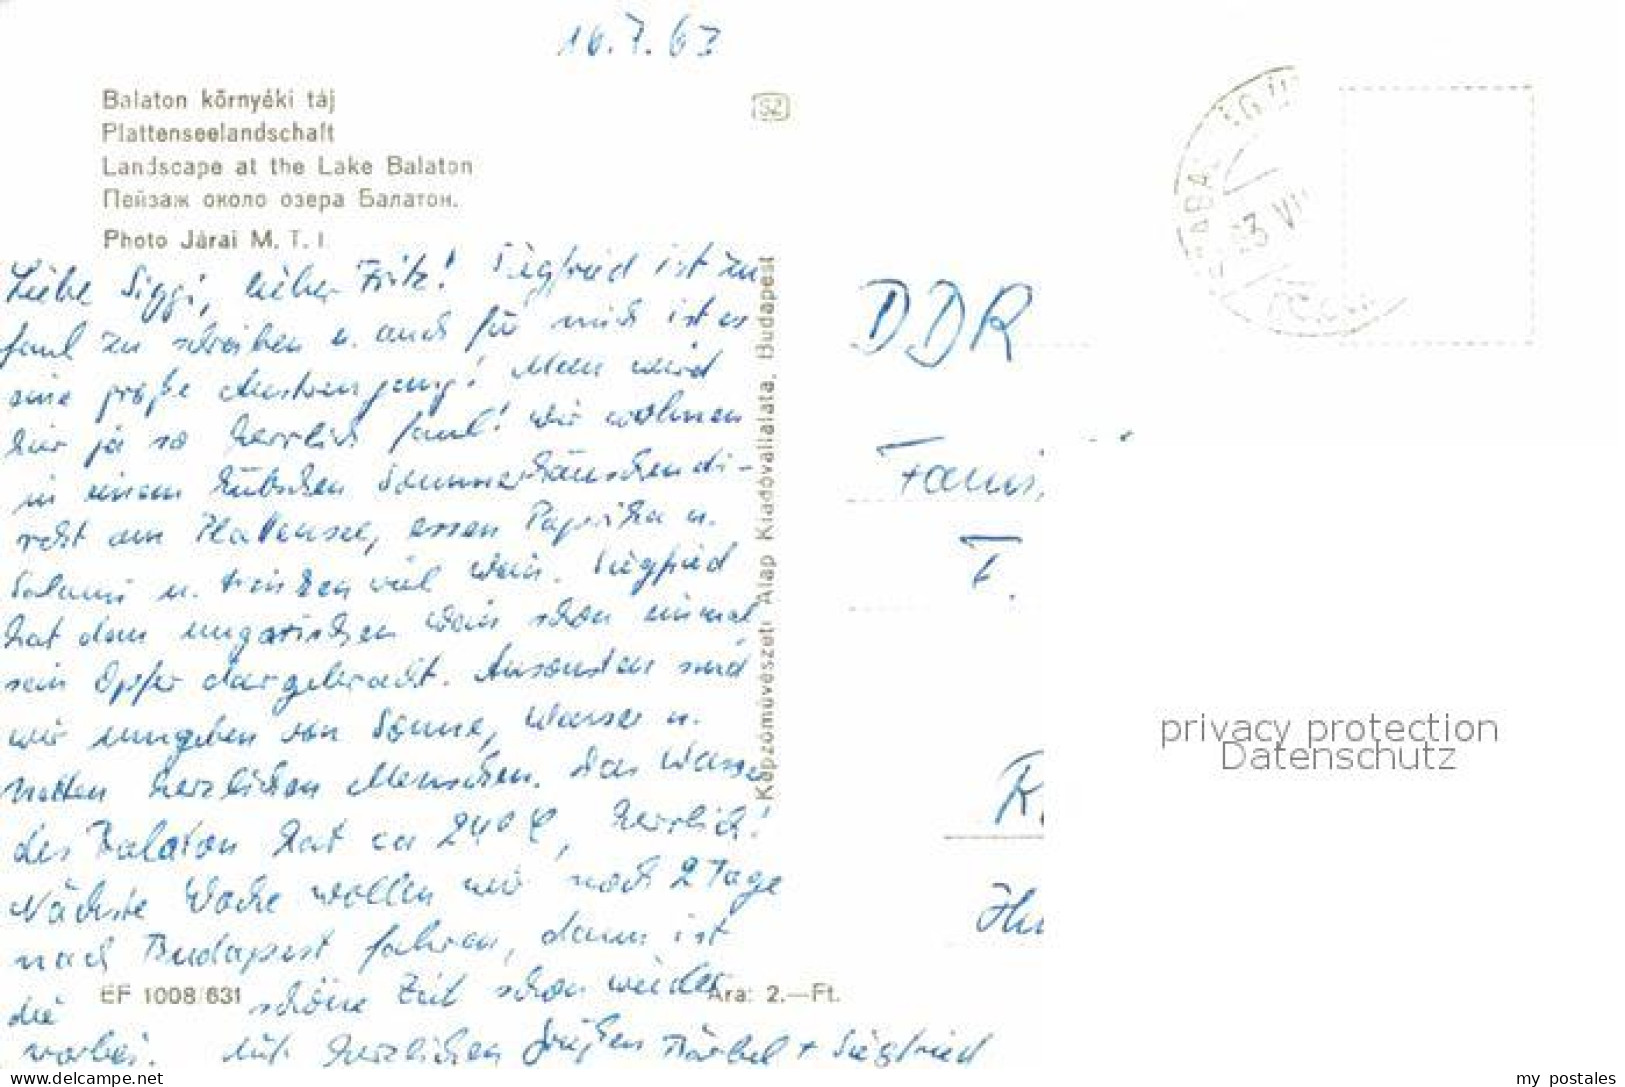 16.7.63
Balaton környéki táj
Plattenseelandschaft
Landscape at the Lake Balaton
Пейзаж около озера Балатон.
Photo Járai M. T. I.
SZ
Liebe Siggi, lieber Fritz! Siegfried ist zu
faul zu schreiben u. auch für mich ist es
eine große Anstrengung! Man wird
hier ja so herrlich faul! Wir wohnen
in einem hübschen Sommerhäuschen di-
rekt am Plattensee, essen Paprika u.
Salami u. trinken viel Wein. Siegfried
hat dem ungarischen Wein schon einmal
sein Opfer dargebracht. Ansonsten sind
wir umgeben von Sonne, Wasser u.
netten herzlichen Menschen. Das Wasser
des Balaton hat ca 24° C, herrlich!
Nächste Woche wollen wir noch 2 Tage
nach Budapest fahren, dann ist
die schöne Zeit schon wieder
vorbei. Mit herzlichen Grüßen Bärbel + Siegfried
EF 1008/631
Ára: 2.—Ft.
Képzőművészeti Alap Kiadóvállalata, Budapest
DDR
Fami
F.
privacy protection
Datenschutz
www.delcampe.net
my_postales